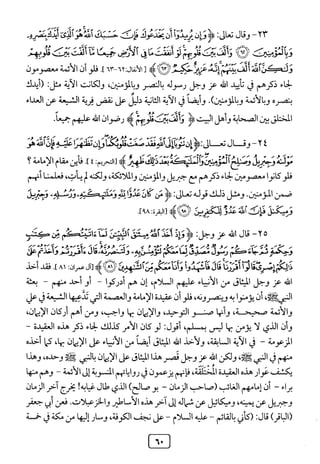 ٢٣- وقال تعالى: ﴿ وَإِن يُرِيدُوٓاْ أَن يَخْدَعُوكَ فَإِنَّ حَسْبَكَ ٱللَّهُ هُوَ ٱلَّذِىٓ أَيَّدَكَ بِنَصْرِهِۦ
وَبِٱلْمُؤْمِنِينَ ۝٦٢ وَأَلَّفَ بَيْنَ قُلُوبِهِمْ لَوْ أَنفَقْتَ مَا فِى ٱلْأَرْضِ جَمِيعًا مَّآ أَلَّفْتَ بَيْنَ قُلُوبِهِمْ
وَلَٰكِنَّ ٱللَّهَ أَلَّفَ بَيْنَهُمْ إِنَّهُۥ عَزِيزٌ حَكِيمٌ ۝٦٣ ﴾ [الأنفال: ٦٢-٦٣]. فلو أن الأئمة معصومون
لجاء ذكرهم في تأييد الله عز وجل رسوله بالنصر وبالمؤمنين، ولكانت الآية مثل: (أيدك
بنصره وبالأئمة وبالمؤمنين). وأيضاً في الآية الثانية دليل على نقض فِرية الشيعة عن العداء
المختلق بين الصحابة وأهل البيت ﴿ وَأَلَّفَ بَيْنَ قُلُوبِهِمْ ﴾ رضوان الله عليهم جميعاً.
٢٤- وقال تعالى: ﴿ إِن تَتُوبَآ إِلَى ٱللَّهِ فَقَدْ صَغَتْ قُلُوبُكُمَا وَإِن تَظَٰهَرَا عَلَيْهِ فَإِنَّ ٱللَّهَ هُوَ
مَوْلَىٰهُ وَجِبْرِيلُ وَصَٰلِحُ ٱلْمُؤْمِنِينَ وَٱلْمَلَٰٓئِكَةُ بَعْدَ ذَٰلِكَ ظَهِيرٌ ﴾ [التحريم: ٤]. فأين مقام الإمامة ؟
فلو كانوا معصومين لجاء ذكرهم مع جبريل والمؤمنين والملائكة، ولكنه لم يأت، فعلمنا أنهم
ضمن المؤمنين. ومثل ذلك قوله تعالى: ﴿ مَن كَانَ عَدُوًّا لِّلَّهِ وَمَلَٰٓئِكَتِهِۦ وَرُسُلِهِۦ وَجِبْرِيلَ
وَمِيكَىٰلَ فَإِنَّ ٱللَّهَ عَدُوٌّ لِّلْكَٰفِرِينَ ۝٩٨ ﴾ [البقرة: ٩٨].
٢٥- قال الله عز وجل: ﴿ وَإِذْ أَخَذَ ٱللَّهُ مِيثَٰقَ ٱلنَّبِيِّۦنَ لَمَآ ءَاتَيْتُكُم مِّن كِتَٰبٍ
وَحِكْمَةٍ ثُمَّ جَآءَكُمْ رَسُولٌ مُّصَدِّقٌ لِّمَا مَعَكُمْ لَتُؤْمِنُنَّ بِهِۦ وَلَتَنصُرُنَّهُۥ قَالَ ءَأَقْرَرْتُمْ وَأَخَذْتُمْ عَلَىٰ
ذَٰلِكُمْ إِصْرِى قَالُوٓاْ أَقْرَرْنَا قَالَ فَٱشْهَدُواْ وَأَنَا۠ مَعَكُم مِّنَ ٱلشَّٰهِدِينَ ۝٨١ ﴾ [آل عمران: ٨١]. فقد أخذ
الله عز وجل الميثاق من الأنبياء عليهم السلام، إن هم أدركوا - أو أحد منهم - بعثة
النبي ﷺ، أن يؤمنوا به وينصرونه، فلو أن عقيدة الإمامة والعصمة التي تدّعيها الشيعة في علي
والأئمة صحيحة، وأنها صنو التوحيد، والإيمان بها واجب، ومن أهم أركان الإيمان،
وأن الذي لا يؤمن بها ليس بمسلم، أقول: لو كان الأمر كذلك لجاء ذكر هذه العقيدة -
المزعومة - في الآية السابقة، ولأخذ الله الميثاق أيضاً من الأنبياء على الإيمان بها، كما أخذه
منهم في النبي ﷺ، ولكن الله عز وجل قصر هذا الميثاق على الإيمان بالنبي ﷺ وحده، وهذا
يكشف عوار هذه العقيدة المُختلَقة، فإنهم يزعمون في رواياتهم المنسوبة إلى الأئمة - وهم منها
براء- أن إمامهم الغائب (صاحب الزمان - بو صالح) الذي طال غيابه! يخرج آخر الزمان
وجبريل عن يمينه، وميكائيل عن شماله إلى آخر هذه الأساطير والخزعبلات. فعن أبي جعفر
(الباقر) قال: (كأني بالقائم - عليه السلام - على نجف الكوفة، وسار إليها من مكة في خمسة
٦٠